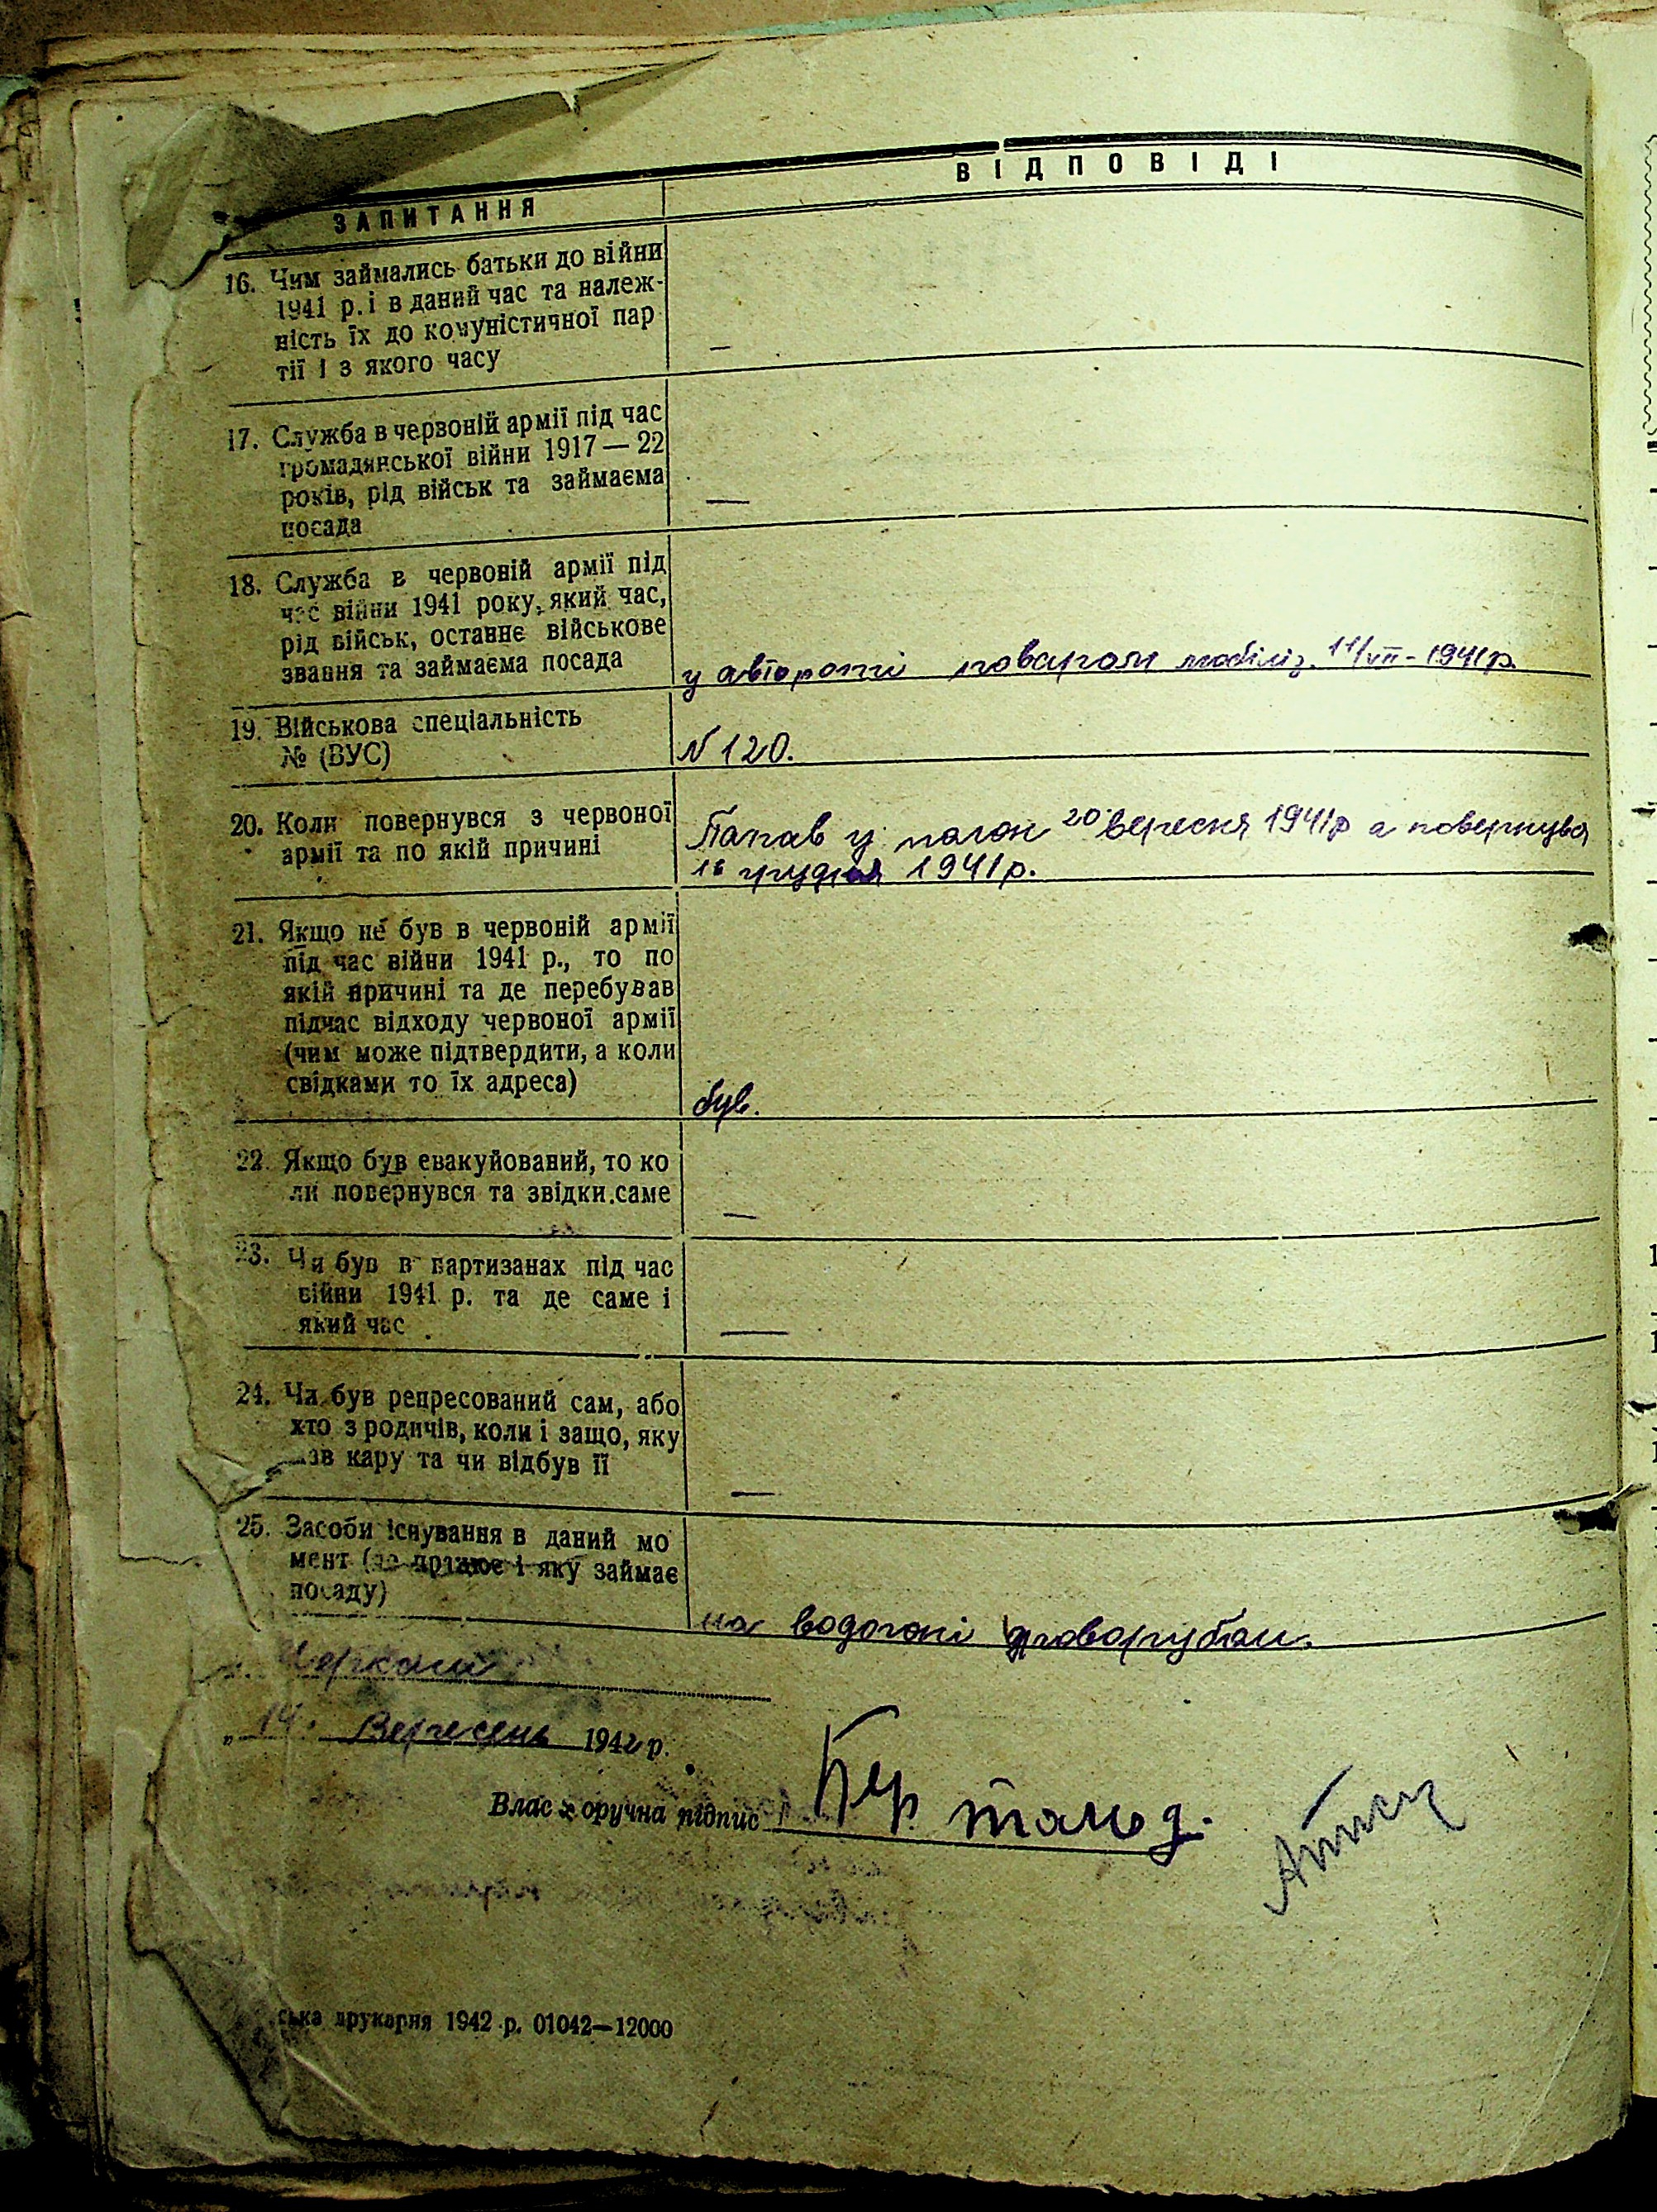 ЗАПИТАННЯ
ВІДПОВІДІ
16. Чим займались батьки до війни
1941 р. і в даний час та належ-
ність їх до комуністичної пар
тії і з якого часу
—
17. Служба в червоній армії під час
громадянської війни 1917 — 22
років, рід військ та займаєма
посада
—
18. Служба в червоній армії під
час війни 1941 року, який час,
рід військ, останнє військове
звання та займаєма посада
у авторотті поваром мобіліз. 11/VII - 1941 р.
19. Військова спеціальність
№ (ВУС)
N 120.
20. Коли повернувся з червоної
армії та по якій причині
Папав у полон 20 вересня 1941 р а повернувся
16 грудня 1941 р.
21. Якщо не був в червоній армії
під час війни 1941 р., то по
якій причині та де перебував
підчас відходу червоної армії
(чим може підтвердити, а коли
свідками то їх адреса)
був.
22. Якщо був евакуйований, то ко
ли повернувся та звідки саме
—
23. Чи був в партизанах під час
війни 1941 р. та де саме і
який час
—
24. Чи був репресований сам, або
хто з родичів, коли і защо, яку
кару та чи відбув її
—
25. Засоби існування в даний мо
мент (де працює і яку займає
посаду)
на водогоні дроворубом.
Черкаси
„ 14 " Вересень 1942 р.
Власноручна підпис
ська друкарня 1942 р. 01042—12000